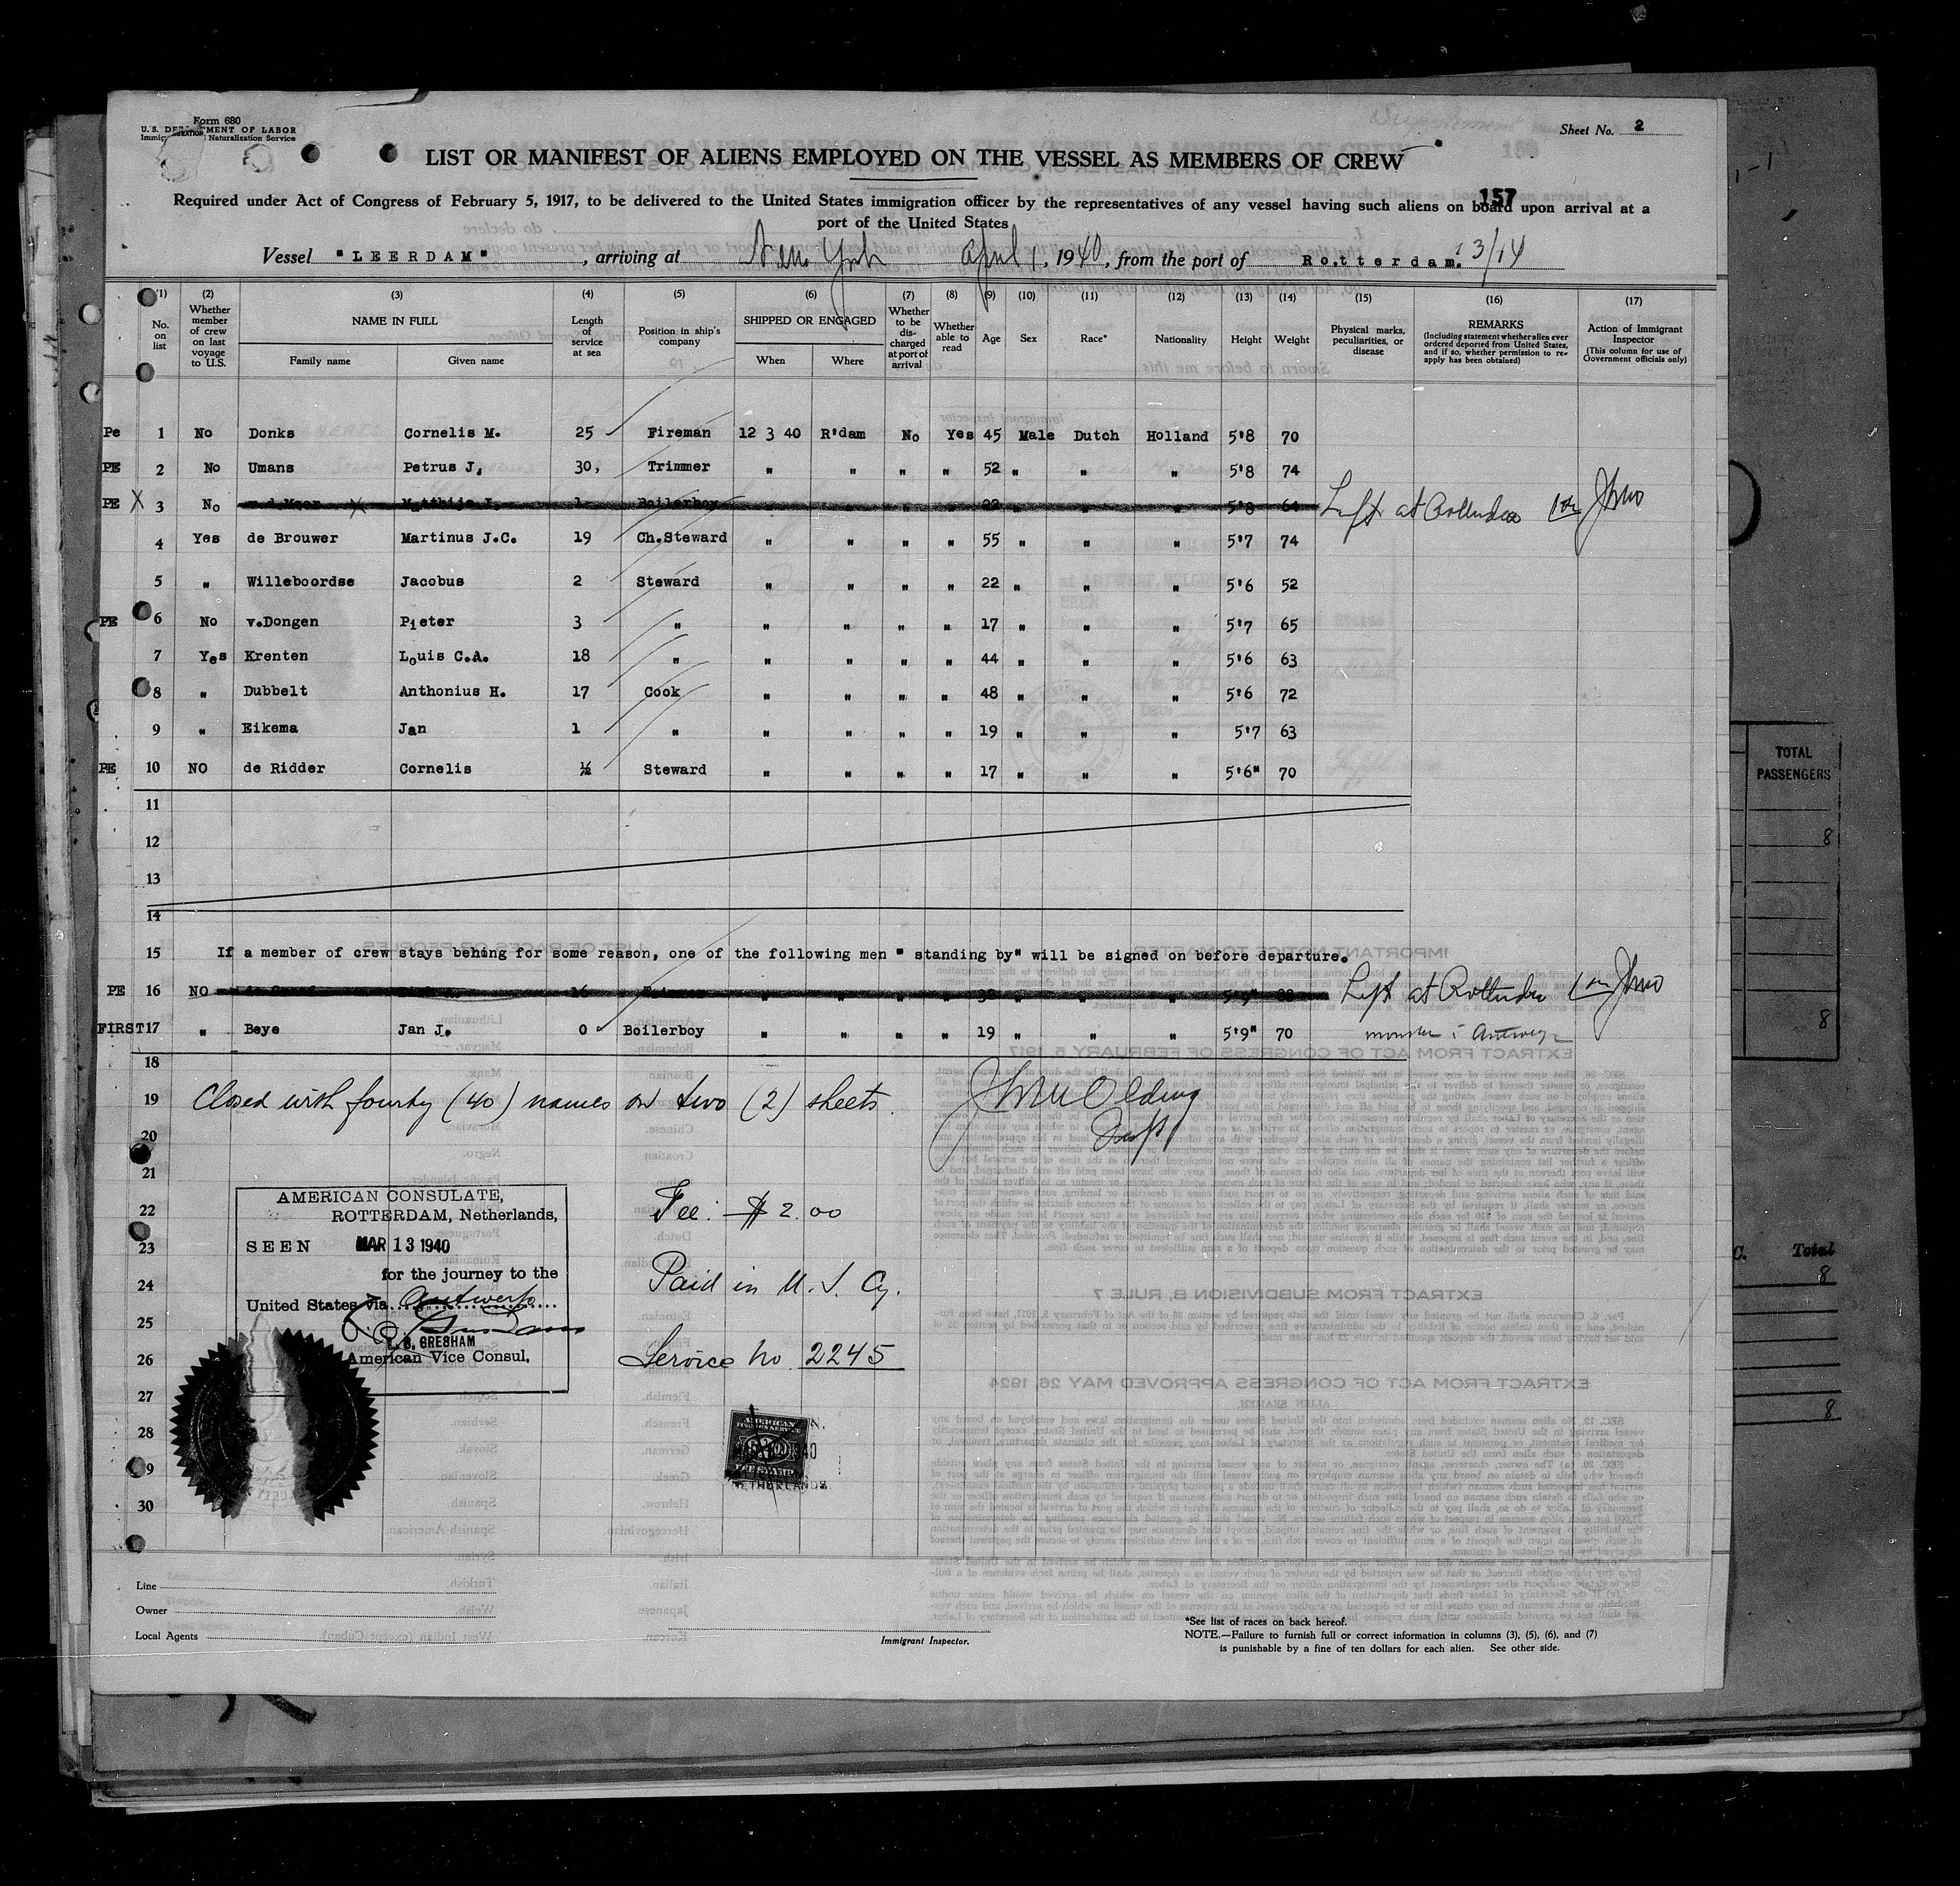 Form 680
U. S. DEPARTMENT OF LABOR
Immigration Naturalization Service
Sheet No. 2
LIST OR MANIFEST OF ALIENS EMPLOYED ON THE VESSEL AS MEMBERS OF CREW
157
Required under Act of Congress of February 5, 1917, to be delivered to the United States immigration officer by the representatives of any vessel having such aliens on board upon arrival at a
port of the United States
Vessel "LEERDAM", arriving at New York April 1, 1940, from the port of Rotterdam. 3/14
(1) (2) (3) (4) (5) (6) (7) (8) (9) (10) (11) (12) (13) (14) (15) (16) (17)
No. on list
Whether member of crew on last voyage to U.S.
NAME IN FULL
Family name Given name
Length of service at sea
Position in ship's company
SHIPPED OR ENGAGED
When Where
Whether to be discharged at port of arrival
Whether able to read
Age Sex Race* Nationality Height Weight
Physical marks, peculiarities, or disease
REMARKS
(Including statement whether alien ever ordered deported from United States, and if so, whether permission to reapply has been obtained)
Action of Immigrant Inspector
(This column for use of Government officials only)
Pe 1 No Donks Cornelis M. 25 Fireman 12 3 40 R'dam No Yes 45 Male Dutch Holland 5'8 70
PE 2 No Umans Petrus J. 30, Trimmer " " " " 52 " " " 5'8 74
PE X 3 No Matthijs J. 1 Boilerboy " " " " 22 " " " 5'8 64 Left at Rotterdam
4 Yes de Brouwer Martinus J.C. 19 Ch.Steward " " " " 55 " " " 5'7 74
5 " Willeboordse Jacobus 2 Steward " " " " 22 " " " 5'6 52
PE 6 No v.Dongen Pieter 3 " " " " " 17 " " " 5'7 65
7 Yes Krenten Louis C.A. 18 " " " " " 44 " " " 5'6 63
8 " Dubbelt Anthonius H. 17 Cook " " " " 48 " " " 5'6 72
9 " Eikema Jan 1 " " " " " 19 " " " 5'7 63
PE 10 NO de Ridder Cornelis ½ Steward " " " " 17 " " " 5'6" 70
11
12
13
14
15 If a member of crew stays behing for some reason, one of the following men " standing by" will be signed on before departure.
PE 16 NO 16 " " " " " " " 5'9" Left at Rotterdam
FIRST 17 " Beye Jan J. 0 Boilerboy " " " " 19 " " " 5'9" 70
18
19 Closed with fourty (40) names on two (2) sheets.
20
21
22 Fee: $2.00
23
24 Paid in U. S. Cy.
25
26 Service No. 2245
27
28
29
30
AMERICAN CONSULATE,
ROTTERDAM, Netherlands,
SEEN MAR 13 1940
for the journey to the
United States via Antwerp
GRESHAM
American Vice Consul.
AMERICAN
FEE STAMP
NETHERLANDS.
Line
Owner
Local Agents
Immigrant Inspector.
*See list of races on back hereof.
NOTE.—Failure to furnish full or correct information in columns (3), (5), (6), and (7)
is punishable by a fine of ten dollars for each alien. See other side.
TOTAL
PASSENGERS
8
8
C. Total
8
8